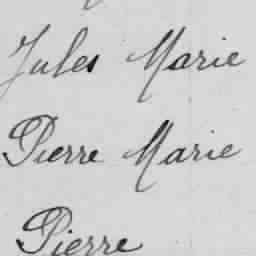 Jules Marie
Pierre Marie
Pierre